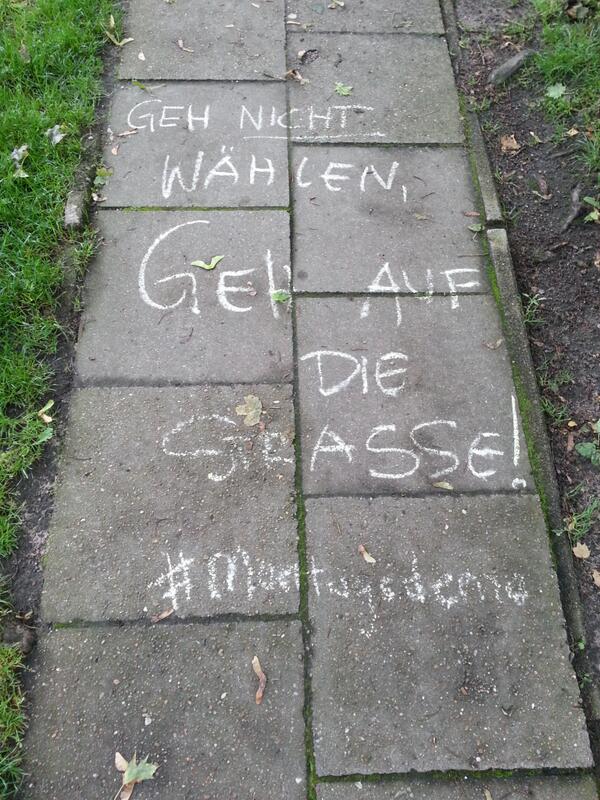 GEH NICHT
WÄHLEN,
GEH AUF
DIE
STRASSE!
#Montagsdemo